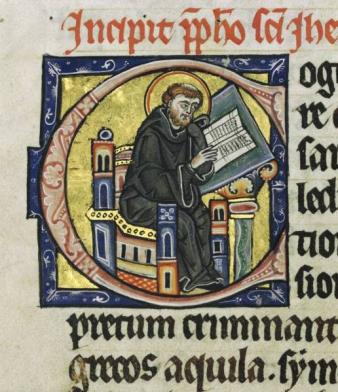 Incipit p̄pho sc̄i Jhe
Cogo
re d
sar
led
tion
sion
pretum criminant
grecos aquila. sym